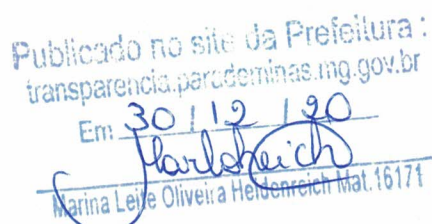 Publicado no site da Prefeitura :
transparencia.parademinas.mg.gov.br
Em 30 / 12 / 20
Marina Leite Oliveira Heidenreich Mat.16171